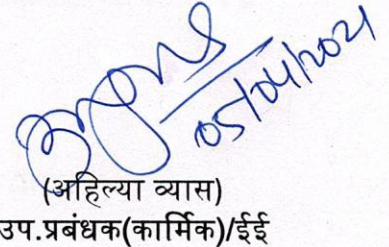 05/04/2021
(अहिल्या व्यास)
उप.प्रबंधक(कार्मिक)/ईई